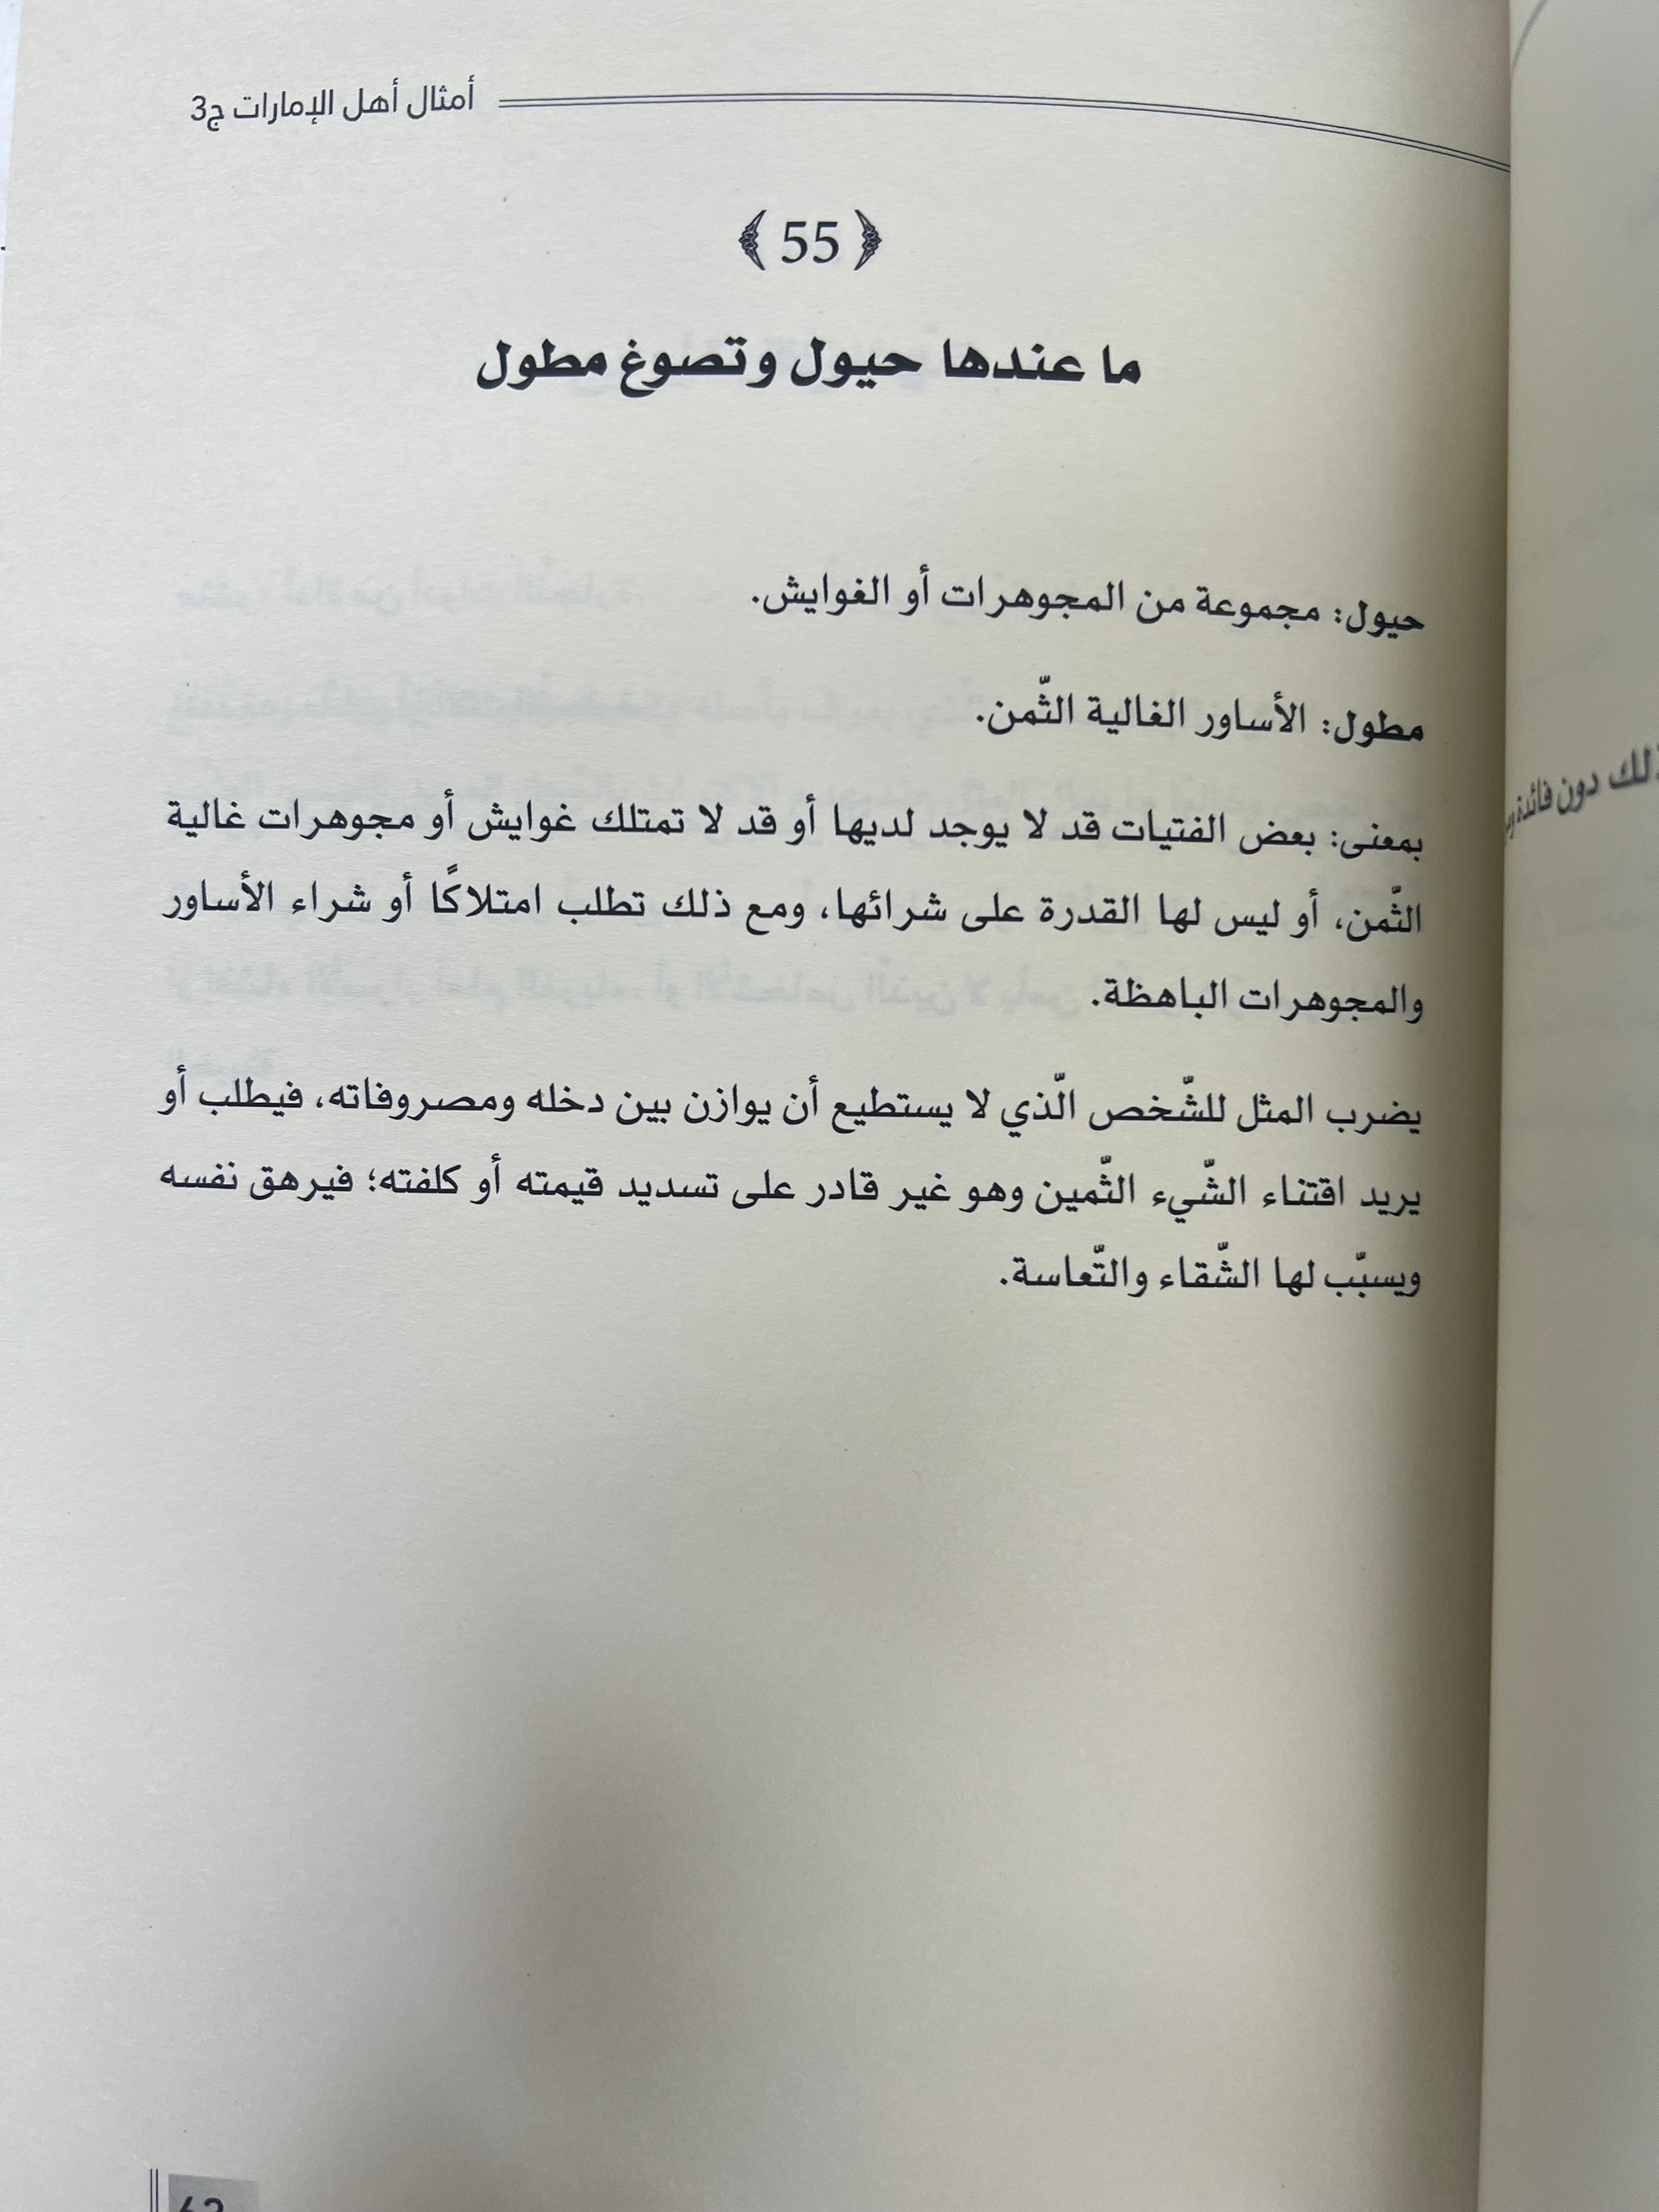 أمثال أهل الإمارات ج3
55
ما عندها حيول وتصوغ مطول
حيول: مجموعة من المجوهرات أو الغوايش.
مطول: الأساور الغالية الثّمن.
بمعنى: بعض الفتيات قد لا يوجد لديها أو قد لا تمتلك غوايش أو مجوهرات غالية
الثّمن، أو ليس لها القدرة على شرائها، ومع ذلك تطلب امتلاكًا أو شراء الأساور
والمجوهرات الباهظة.
يضرب المثل للشّخص الّذي لا يستطيع أن يوازن بين دخله ومصروفاته، فيطلب أو
يريد اقتناء الشّيء الثّمين وهو غير قادر على تسديد قيمته أو كلفته؛ فيرهق نفسه
ويسبّب لها الشّقاء والتّعاسة.
دون فائدة
63